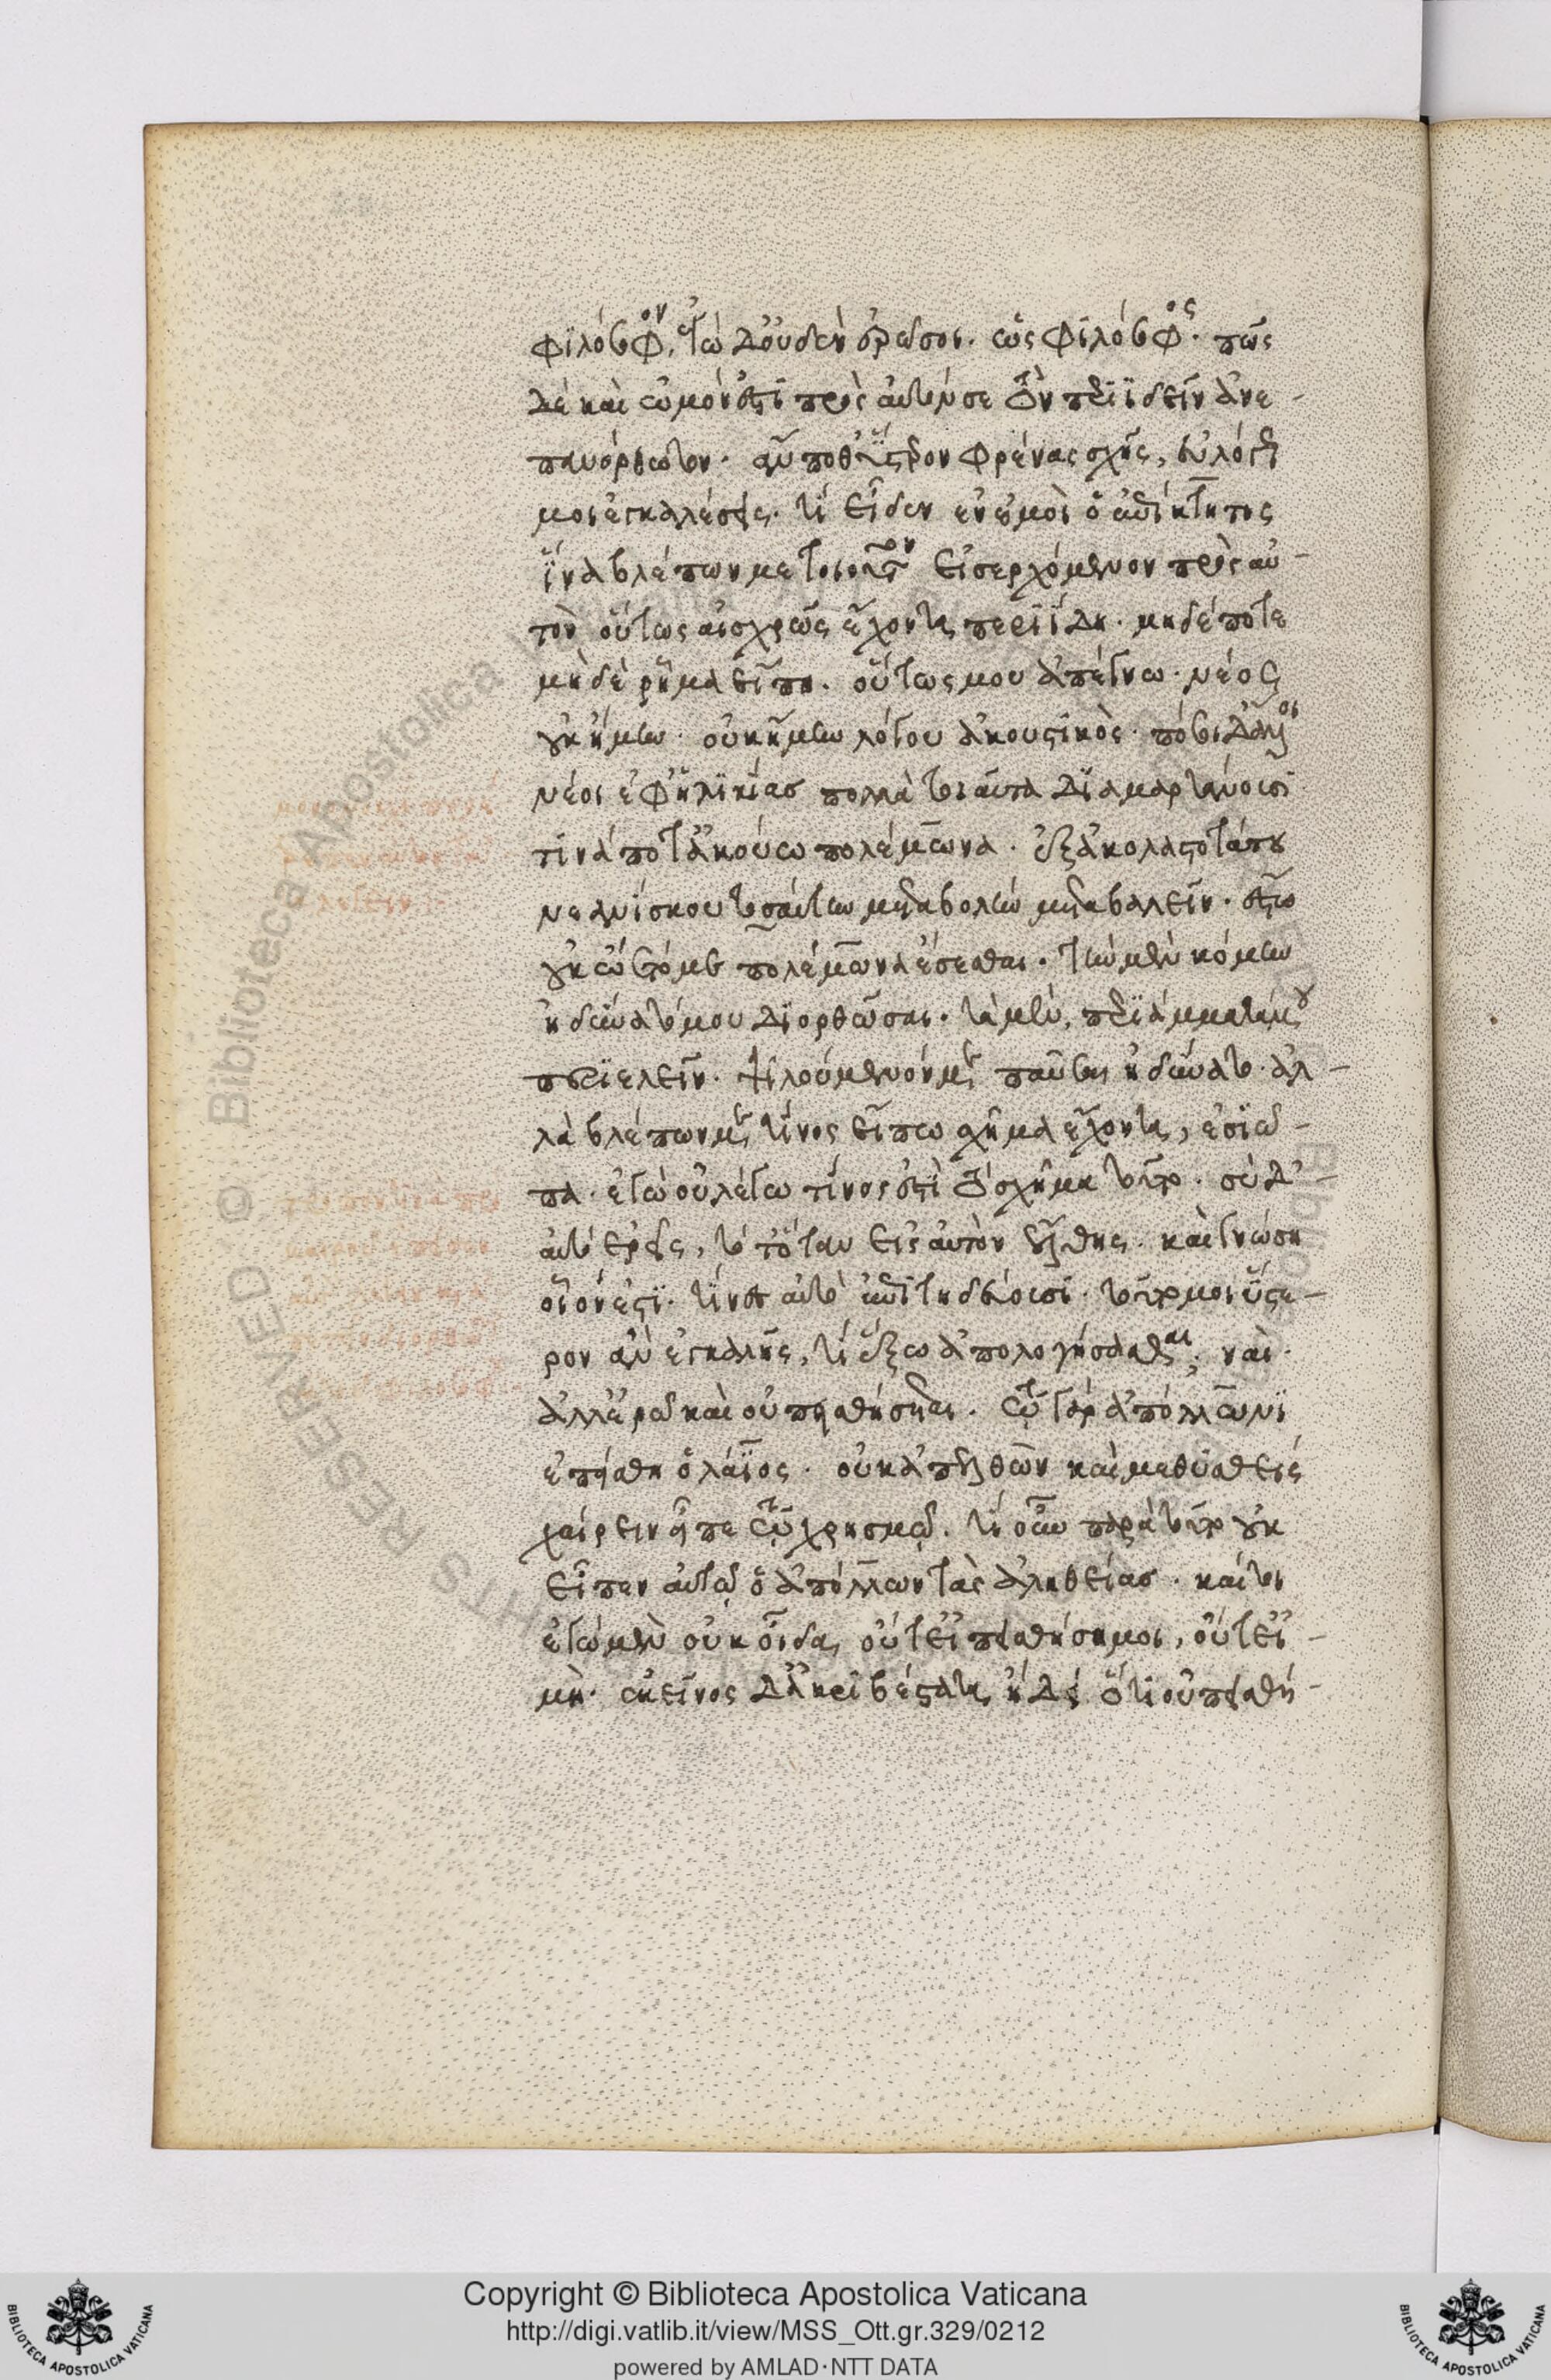 φιλόσοφον, ἐγὼ δ' οὐδὲν ἐρῶ σοι. ὡς φιλόσοφος· πῶς
δὲ καὶ ὠμόν ἐστι πρὸς αὐτόν σε τὸν περιϊδεῖν ἀνε-
πανόρθωτον· ἄν ποθ' ὕστερον φρένας σχῇς, εὐλόγως
μοι ἐγκαλέσεις. τί εἶδεν ἐν ἐμοὶ ὁ ἐπίκτητος
ἵνα βλέπων με τοιοῦτον εἰσερχόμενον πρὸς αὐ-
τὸν οὕτως αἰσχρῶς ἔχοντα περιΐδη· μηδέποτε
μηδὲ ῥῆμα εἴπη. οὕτως μου ἀπέγνω· νέος
οὐκ ἤμην· οὐκ ἤμην λόγου ἀκουστικὸς· πόσοι δ' ἄλλοι
νέοι ἐφ' ἡλικίας πολλὰ τοιαῦτα διαμαρτάνουσι·
τινά ποτ' ἀκούω πολέμωνα. ἐξ ἀκολαστοτάτου
νεανίσκου τοσαύτην μεταβολὴν μεταβαλεῖν. ἔστω
οὐκ ᾤετό με πολέμωνα ἔσεσθαι. τὴν μὲν κόμην
ἠδύνατό μου διορθῶσαι. τὰ μὲν, περιάμματά μου
περιελεῖν. ψιλούμενόν με παῦσαι ἠδύνατο. ἀλ-
λὰ βλέπων με τίνος εἴπω σχῆμα ἔχοντα, ἐσιώ-
πα. ἐγὼ οὐ λέγω τίνος ἐστὶ τὸ σχῆμα τοῦτο. σὺ δ'
αὐτὸ ἐρεῖς, τό τ' ὅταν εἰς αὐτὸν ἔλθης. καὶ γνώση
οἷόν ἐστι. τίνες αὐτὸ ἐπιτηδεύουσι. τοῦτό μοι ὕστε-
ρον ἂν ἐγκαλῆς, τί ἕξω ἀπολογήσασθαι; ναὶ·
ἀλλ' ἐρῶ καὶ οὐ πεισθήσεται. τῷ γὰρ ἀπόλλωνι
ἐπείσθη ὁ λάϊος. οὐκ ἀπελθὼν καὶ μεθυσθεὶς
χαίρειν εἶπε τῷ χρησμῷ. τί οὖν παρὰ τοῦτο οὐκ
εἶπεν αὐτῷ ὁ ἀπόλλων τὰς ἀληθείας. καίτοι
ἐγὼ μὲν οὐκ οἶδα, οὔτ' εἰ πεισθήση μοι, οὔτ' εἰ-
μὴ. ἐκεῖνος δ' ἀκριβέστατα ἤδει ὅτι οὐ πεισθή-
Copyright © Biblioteca Apostolica Vaticana
http://digi.vatlib.it/view/MSS_Ott.gr.329/0212
powered by AMLAD·NTT DATA